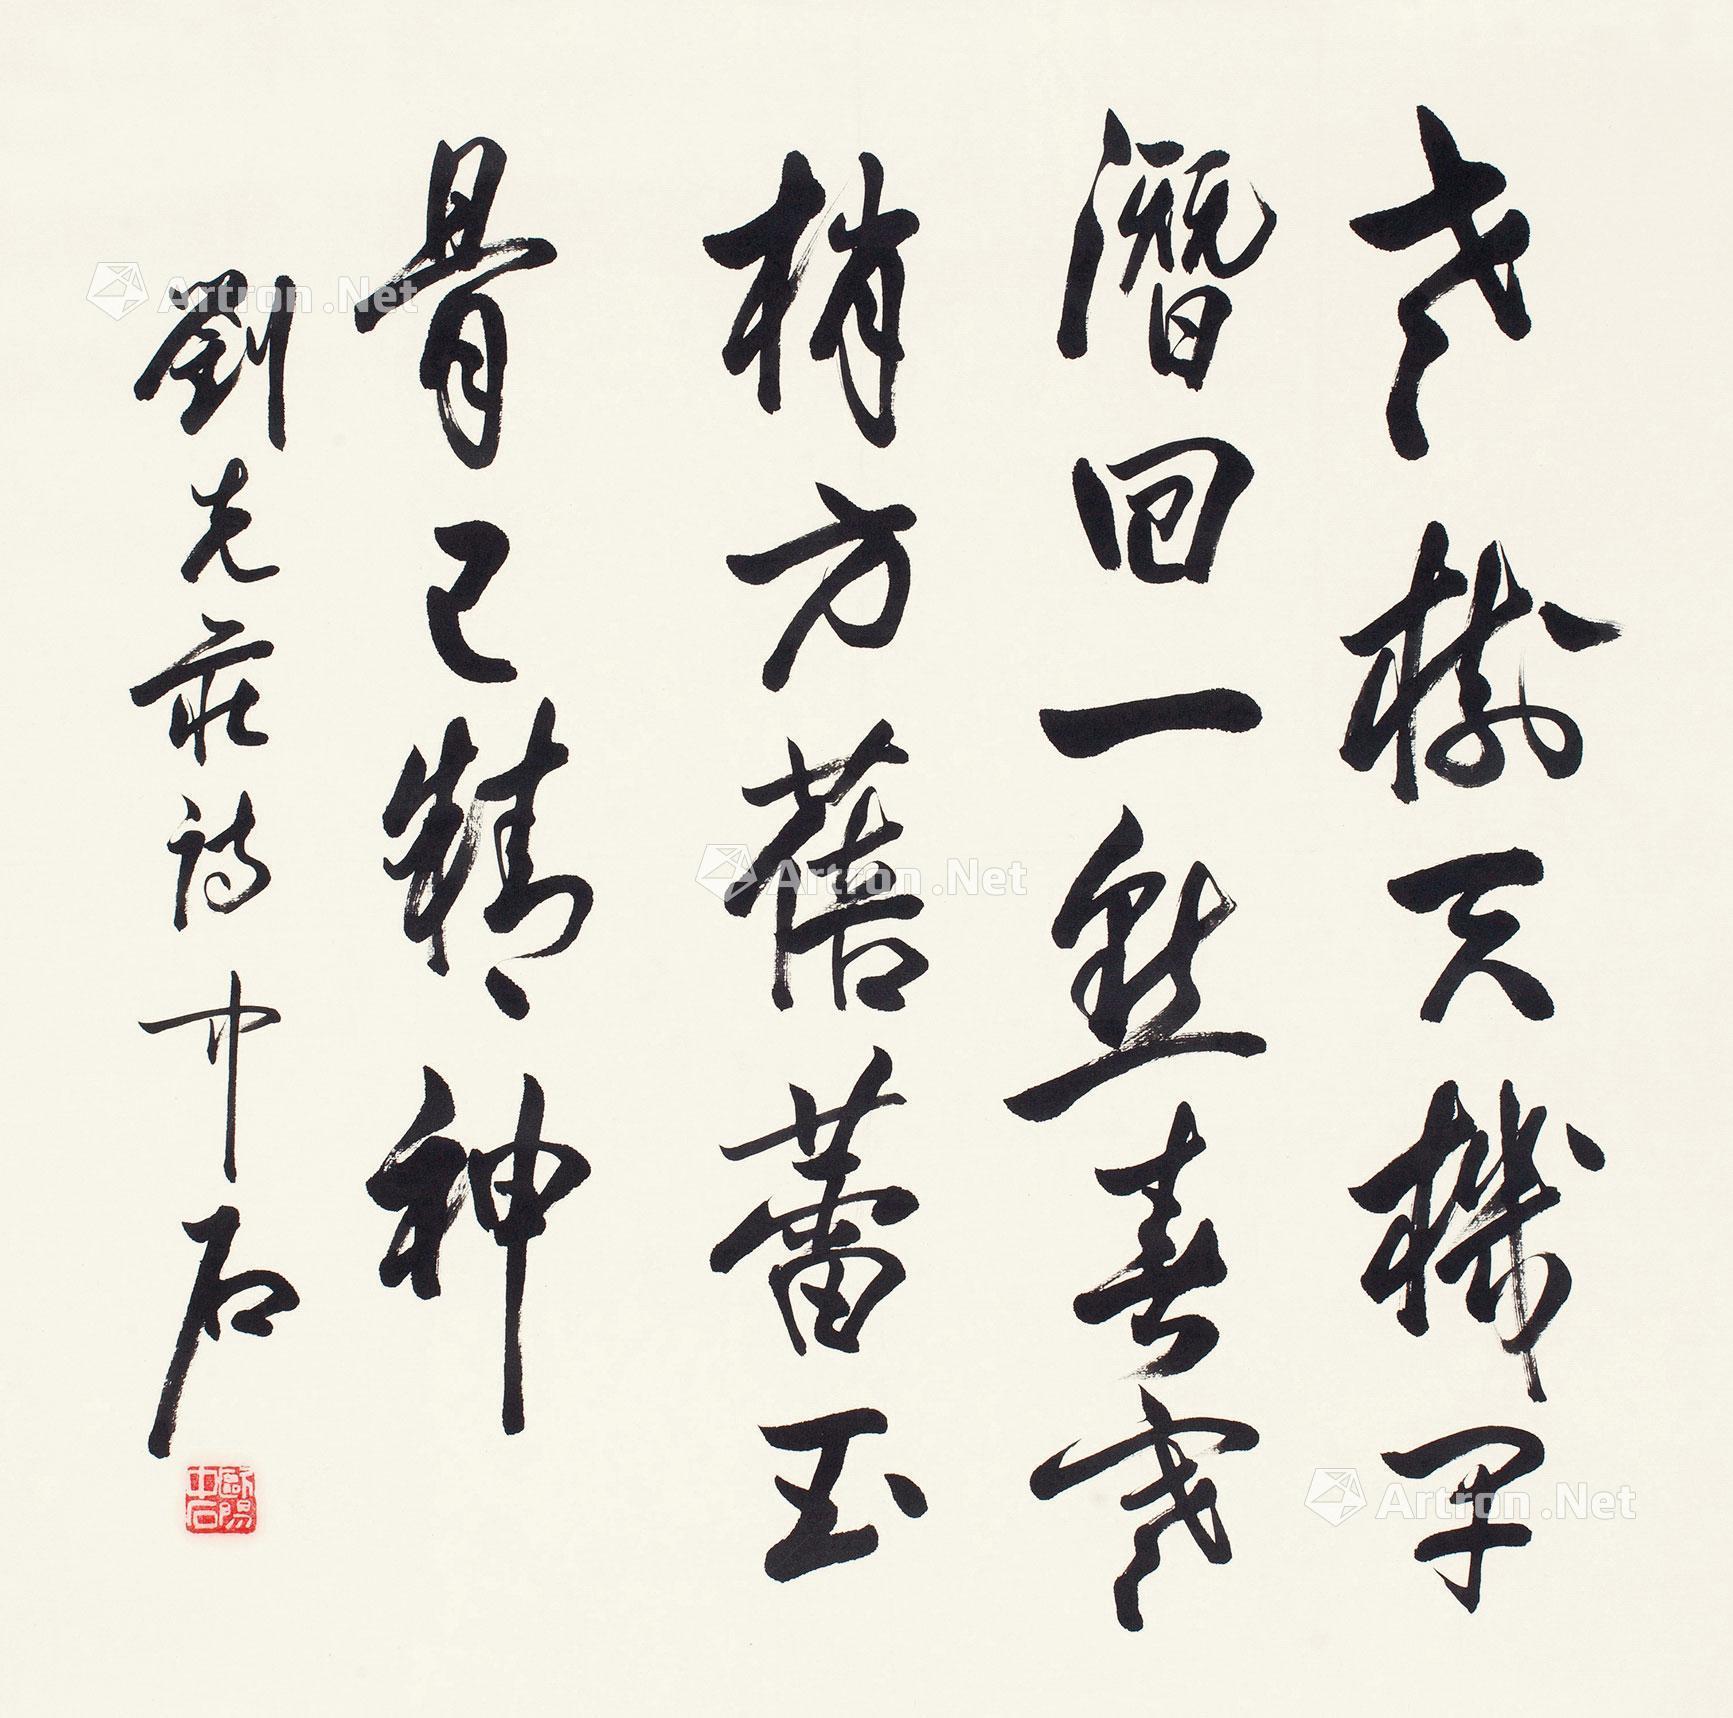 老樹天機早
潛回一點春寒
梢方蓓蕾玉
骨已精神
劉克莊詩 中石
歐陽中石
Artron.Net
Artron.Net
Artron.Net